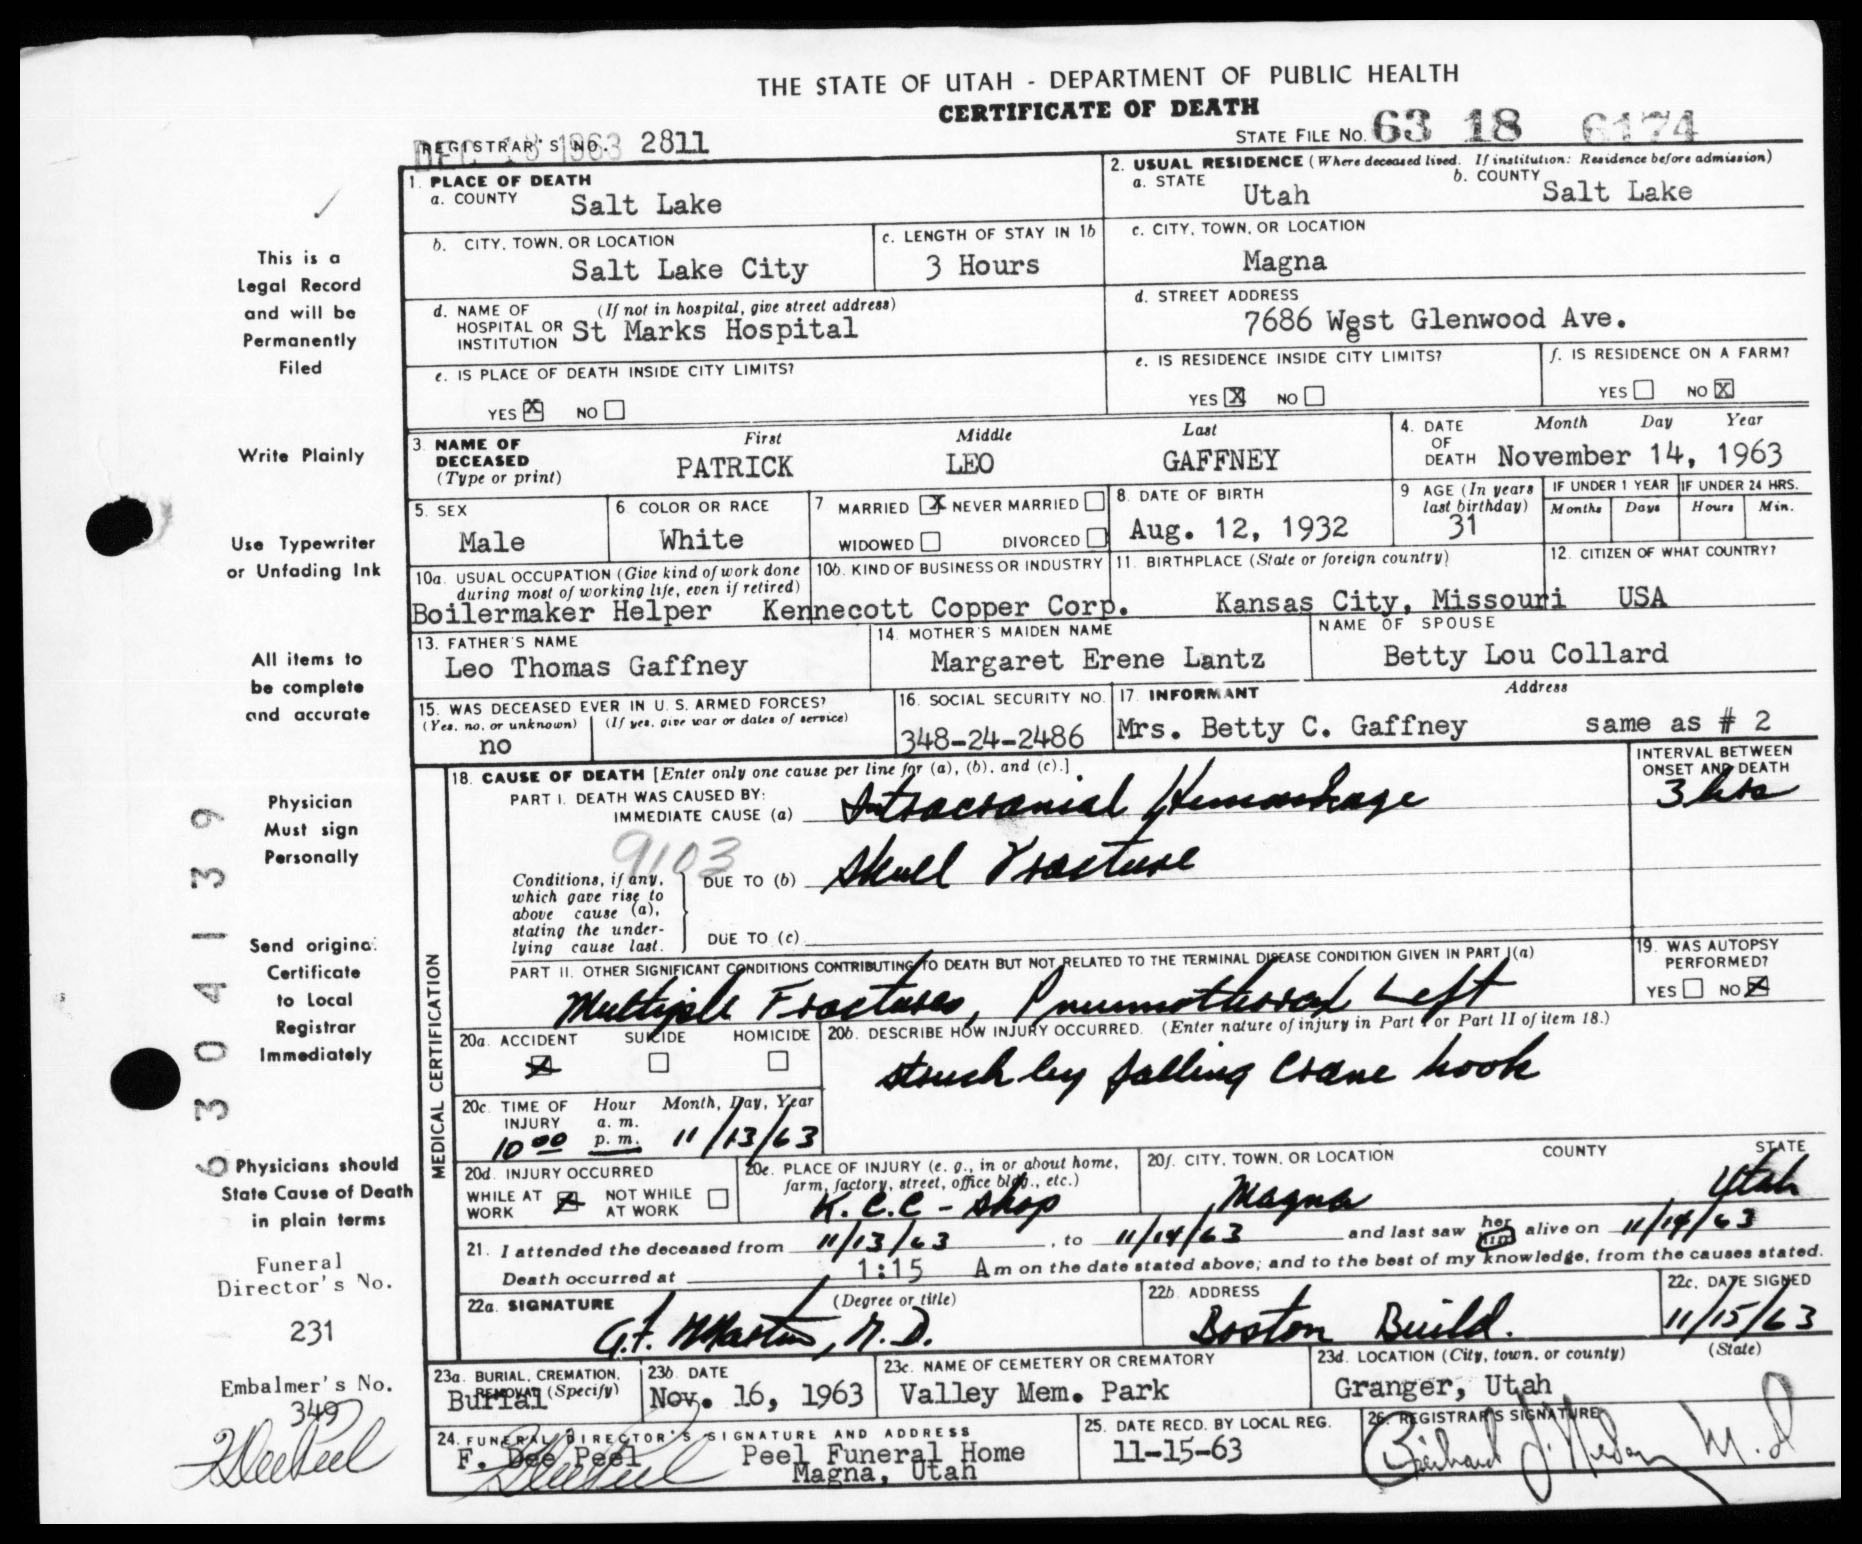 THE STATE OF UTAH - DEPARTMENT OF PUBLIC HEALTH
CERTIFICATE OF DEATH
STATE FILE NO. 63 18 6174
REGISTRAR'S NO. 2811
DEC 18 1963
1. PLACE OF DEATH
a. COUNTY Salt Lake
2. USUAL RESIDENCE (Where deceased lived. If institution: Residence before admission)
a. STATE Utah b. COUNTY Salt Lake
b. CITY, TOWN, OR LOCATION Salt Lake City
c. LENGTH OF STAY IN 1b 3 Hours
c. CITY, TOWN, OR LOCATION Magna
d. NAME OF HOSPITAL OR INSTITUTION (If not in hospital, give street address) St Marks Hospital
d. STREET ADDRESS 7686 West Glenwood Ave.
e. IS PLACE OF DEATH INSIDE CITY LIMITS?
YES X NO
e. IS RESIDENCE INSIDE CITY LIMITS?
YES X NO
f. IS RESIDENCE ON A FARM?
YES NO X
3. NAME OF DECEASED (Type or print)
First Middle Last
PATRICK LEO GAFFNEY
4. DATE OF DEATH Month Day Year
November 14, 1963
5. SEX Male
6. COLOR OR RACE White
7 MARRIED X NEVER MARRIED
WIDOWED DIVORCED
8. DATE OF BIRTH Aug. 12, 1932
9 AGE (In years last birthday) 31
IF UNDER 1 YEAR Months Days
IF UNDER 24 HRS. Hours Min.
10a. USUAL OCCUPATION (Give kind of work done during most of working life, even if retired)
Boilermaker Helper
10b. KIND OF BUSINESS OR INDUSTRY
Kennecott Copper Corp.
11. BIRTHPLACE (State or foreign country)
Kansas City, Missouri
12. CITIZEN OF WHAT COUNTRY?
USA
13. FATHER'S NAME
Leo Thomas Gaffney
14. MOTHER'S MAIDEN NAME
Margaret Erene Lantz
NAME OF SPOUSE
Betty Lou Collard
15. WAS DECEASED EVER IN U. S. ARMED FORCES?
(Yes, no, or unknown) (If yes, give war or dates of service)
no
16. SOCIAL SECURITY NO.
348-24-2486
17. INFORMANT Address
Mrs. Betty C. Gaffney same as # 2
MEDICAL CERTIFICATION
18. CAUSE OF DEATH [Enter only one cause per line for (a), (b), and (c).]
INTERVAL BETWEEN ONSET AND DEATH
PART I. DEATH WAS CAUSED BY:
IMMEDIATE CAUSE (a) Intracranial Hemorrhage 3 hrs
9103
Conditions, if any, which gave rise to above cause (a), stating the underlying cause last.
DUE TO (b) Skull Fracture
DUE TO (c)
PART II. OTHER SIGNIFICANT CONDITIONS CONTRIBUTING TO DEATH BUT NOT RELATED TO THE TERMINAL DISEASE CONDITION GIVEN IN PART I(a)
Multiple Fractures, Pneumothorax Left
19. WAS AUTOPSY PERFORMED?
YES NO X
20a. ACCIDENT SUICIDE HOMICIDE
X
20b. DESCRIBE HOW INJURY OCCURRED. (Enter nature of injury in Part I or Part II of item 18.)
struck by falling crane hook
20c. TIME OF INJURY Hour a. m. p. m. Month, Day, Year
10 00 11/13/63
20d. INJURY OCCURRED
WHILE AT WORK X NOT WHILE AT WORK
20e. PLACE OF INJURY (e. g., in or about home, farm, factory, street, office bldg., etc.)
K.C.C - shop
20f. CITY, TOWN, OR LOCATION COUNTY STATE
Magna Utah
21. I attended the deceased from 11/13/63, to 11/14/63 and last saw her him alive on 11/14/63
Death occurred at 1:15 A m on the date stated above; and to the best of my knowledge, from the causes stated.
22a. SIGNATURE (Degree or title)
M.D.
22b. ADDRESS
Boston Build.
22c. DATE SIGNED
11/15/63
23a. BURIAL, CREMATION, REMOVAL (Specify)
Burial
23b. DATE
Nov. 16, 1963
23c. NAME OF CEMETERY OR CREMATORY
Valley Mem. Park
23d. LOCATION (City, town, or county) (State)
Granger, Utah
24. FUNERAL DIRECTOR'S SIGNATURE AND ADDRESS
F. Dee Peel Peel Funeral Home
Magna, Utah
25. DATE RECD. BY LOCAL REG.
11-15-63
26. REGISTRAR'S SIGNATURE
M.D
This is a
Legal Record
and will be
Permanently
Filed
Write Plainly
Use Typewriter
or Unfading Ink
All items to
be complete
and accurate
Physician
Must sign
Personally
Send original
Certificate
to Local
Registrar
Immediately
Physicians should
State Cause of Death
in plain terms
Funeral
Director's No.
231
Embalmer's No.
349
F Dee Peel
6304139